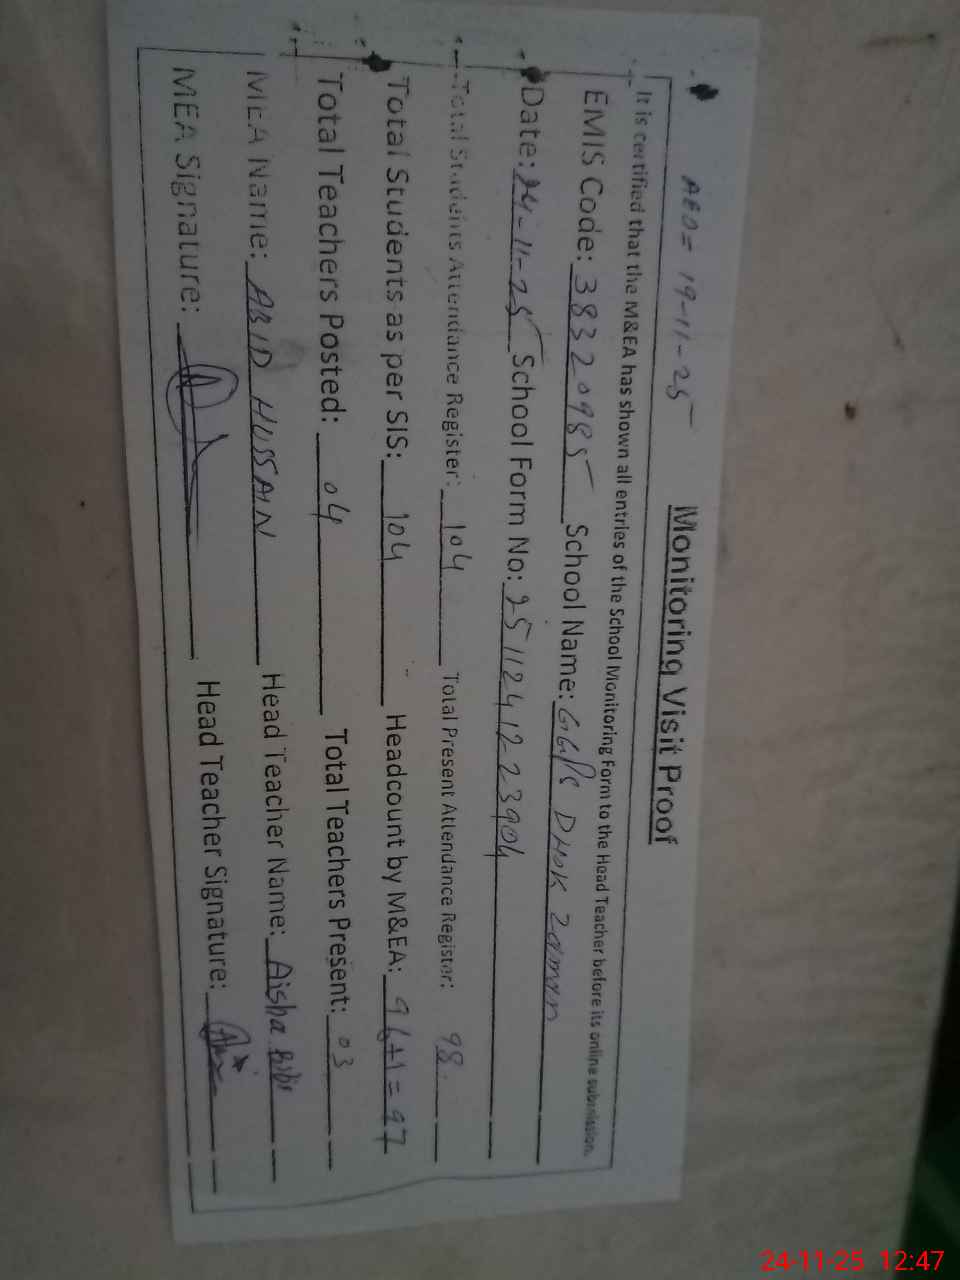 AEO = 19-11-25
Monitoring Visit Proof
It is certified that the M&EA has shown all entries of the School Monitoring Form to the Head Teacher before its online submission.
EMIS Code: 38320985 School Name: GGPS DHOK Zaman
Date: 24-11-25 School Form No: 251124122 3904
Total Students Attendance Register: 104 Total Present Attendance Register: 98
Total Students as per SIS: 104 Headcount by M&EA: 96+1=97
Total Teachers Posted: 04 Total Teachers Present: 03
MEA Name: ABID HUSSAIN Head Teacher Name: Aisha Bibi
MEA Signature: Head Teacher Signature:
24-11-25 12:47